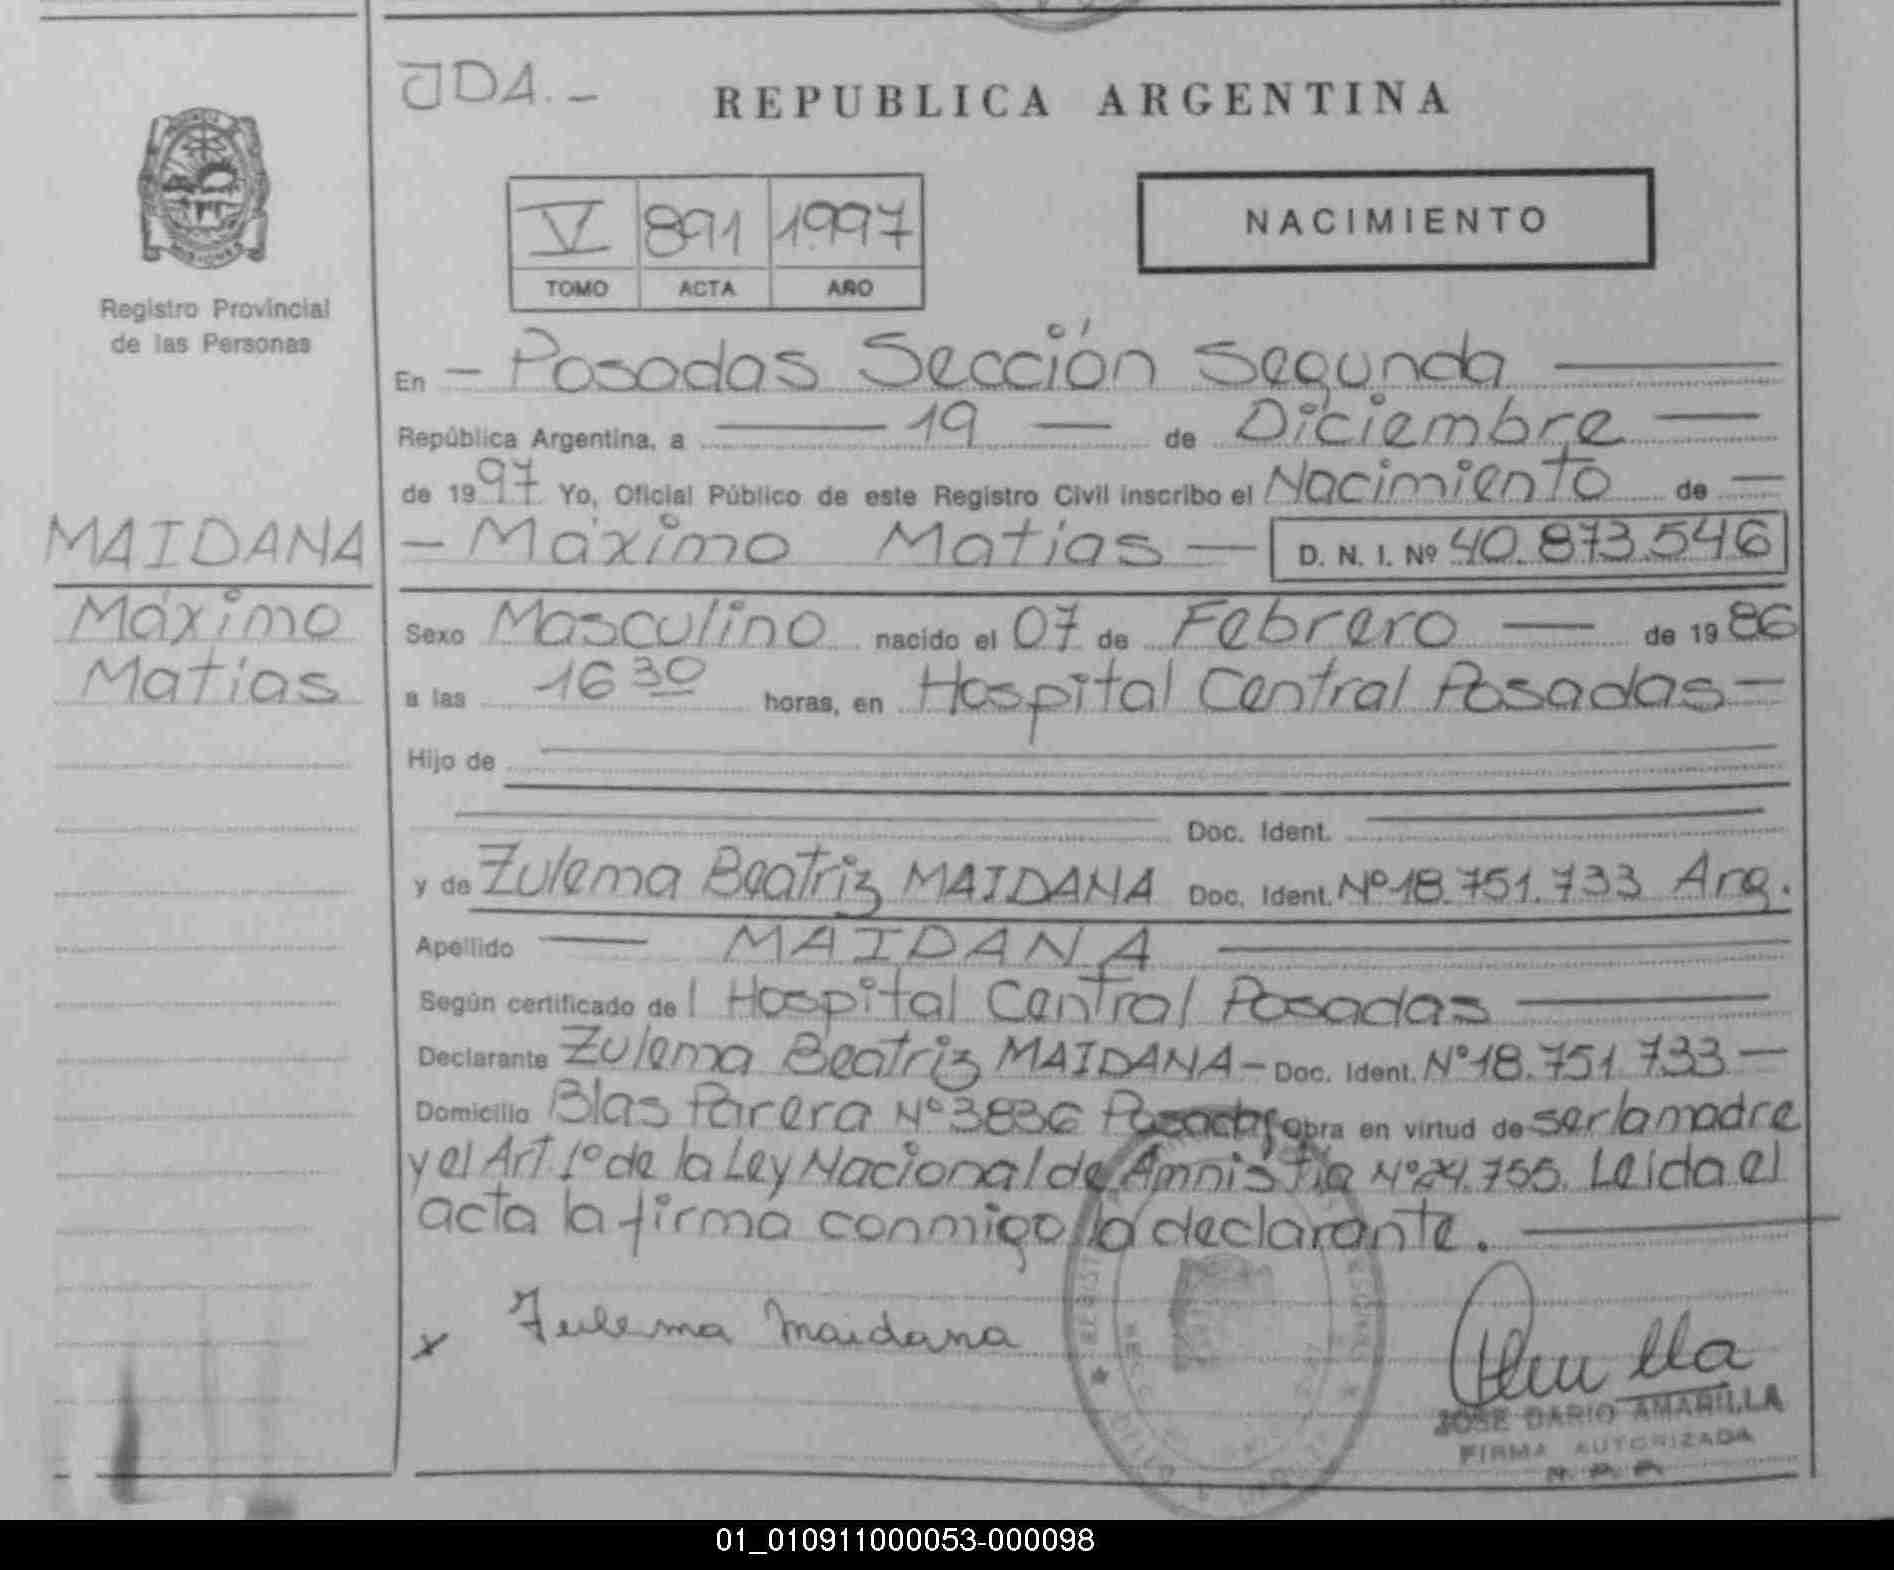 JDA.-
REPUBLICA ARGENTINA
V 891 1997
TOMO ACTA AÑO
NACIMIENTO
Registro Provincial
de las Personas
MAIDANA
Máximo
Matías
En - Posadas Sección Segunda
República Argentina, a 19 de Diciembre
de 1997 Yo, Oficial Público de este Registro Civil inscribo el Nacimiento de
- Máximo Matías - D. N. I. Nº 40.873.546
Sexo Masculino nacido el 07 de Febrero de 1986
a las 16 30 horas, en Hospital Central Posadas -
Hijo de
Doc. Ident.
y de Zulema Beatriz MAIDANA Doc. Ident. Nº 18.751.733 Arg.
Apellido MAIDANA
Según certificado del Hospital Central Posadas
Declarante Zulema Beatriz MAIDANA - Doc. Ident. Nº 18.751.733 -
Domicilio Blas Parera Nº 3836 Posadas Obra en virtud de ser la madre
y el Art. 1º de la Ley Nacional de Amnistía Nº 24.755. Leída el
acta la firma conmigo la declarante.
x Zulema Maidana
JOSE DARIO AMARILLA
FIRMA AUTORIZADA
01_010911000053-000098